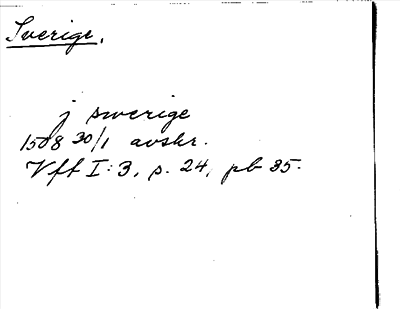 Sverige.
j swerige
1508 30/1 avskr.
Vff I:3, s. 24, pb 35.